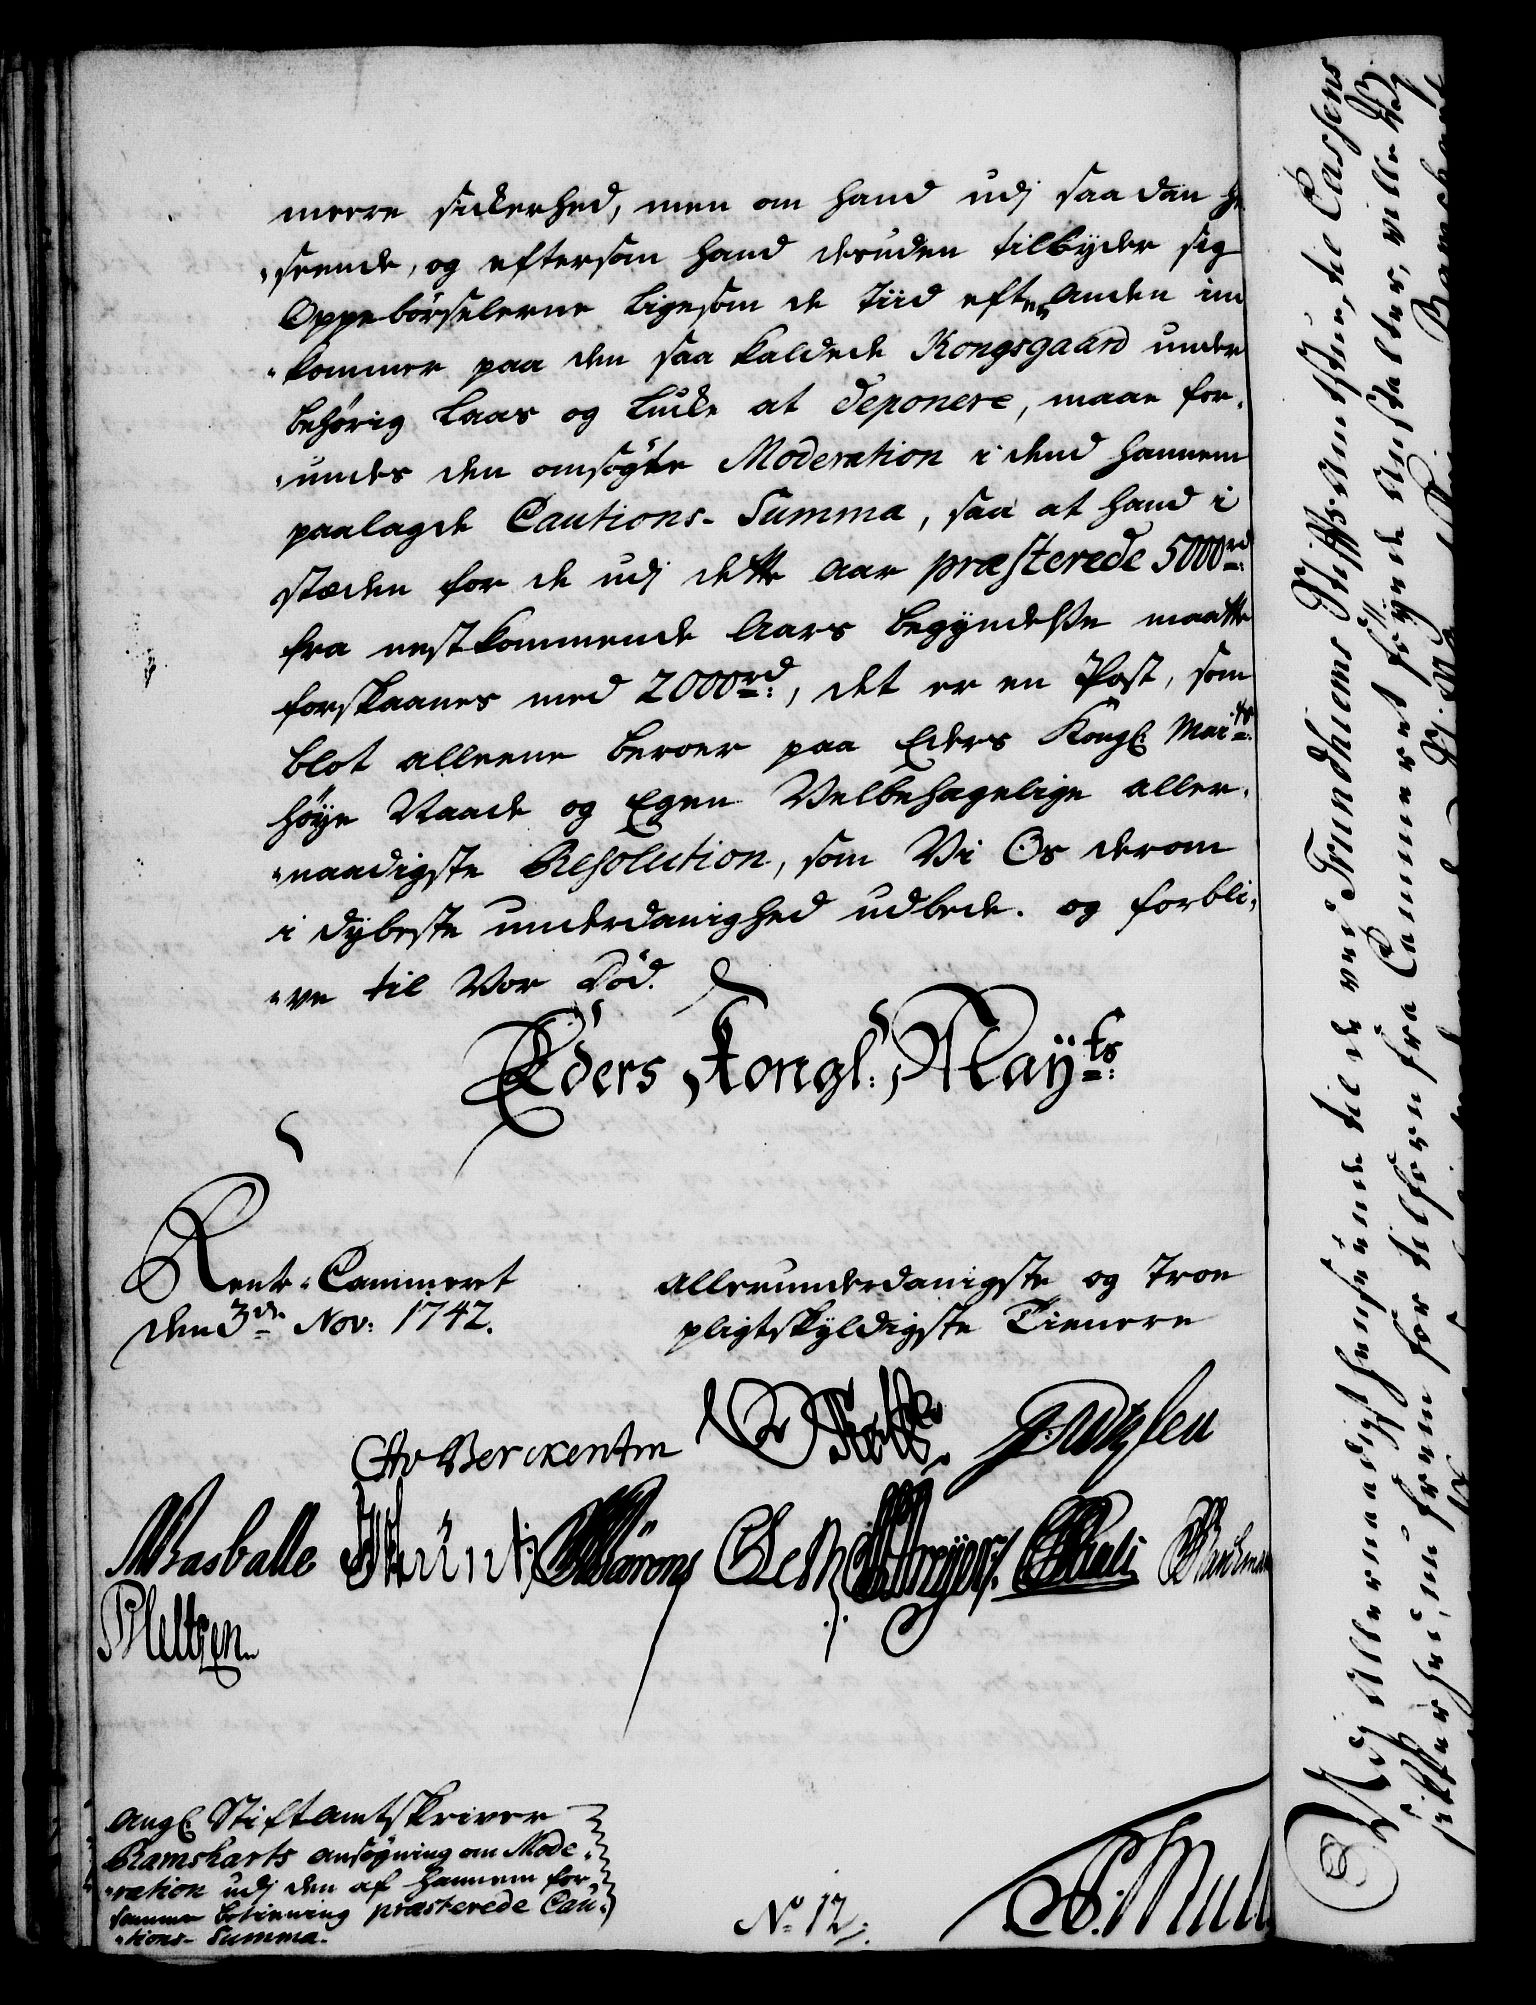 meere sickerhed, men om hand udj saadan he
„seende, og eftersom hand desuden tilbyder sig
Oppebørselerne ligesom de Tiid efter Anden ind
„kommer paa den saa kaldede Kongsgaard under
behørig Laas og Lucke at deponere, maae for„
„undes den ansøgte Moderation i dend hannem
paalagde Cautions-Summa, saa at hand i
stæden for de udj dette Aar præsterede 5000 rd:
fra nestkommende Aars begyndelse maatte
forskaanes med 2000 rd:, det er en Post, som
blot alleene beroer paa Eders Kongl: Mai:ts
høye Naade og Egen Velbehagelige aller„
„naadigste Resolution, som Vi Os derom
i dybeste underdanighed udbede. og forbli„
„ve til Vor Død.
Eders Kongl: Mayts:
Rente-Cammeret
den 3de Nov: 1742.
Allerunderdanigste og Troe
pligtskyldigste Tienere
CAv Berckentin
Basballe
PHeltzen
Angl Stiftamtskriver
Ramsharts ansøgning om Mode„
„ration udj den af hannem for
samme betiening præsterede Cau„
„tions-Summa.
No 12
Udj Allernaadigst henseende til de ved Trundhiems Stifts Amtstue, til Cassens
sikkerhed, nu frem for tilforn fra Cammeret føyede Anstalter, ville Vj